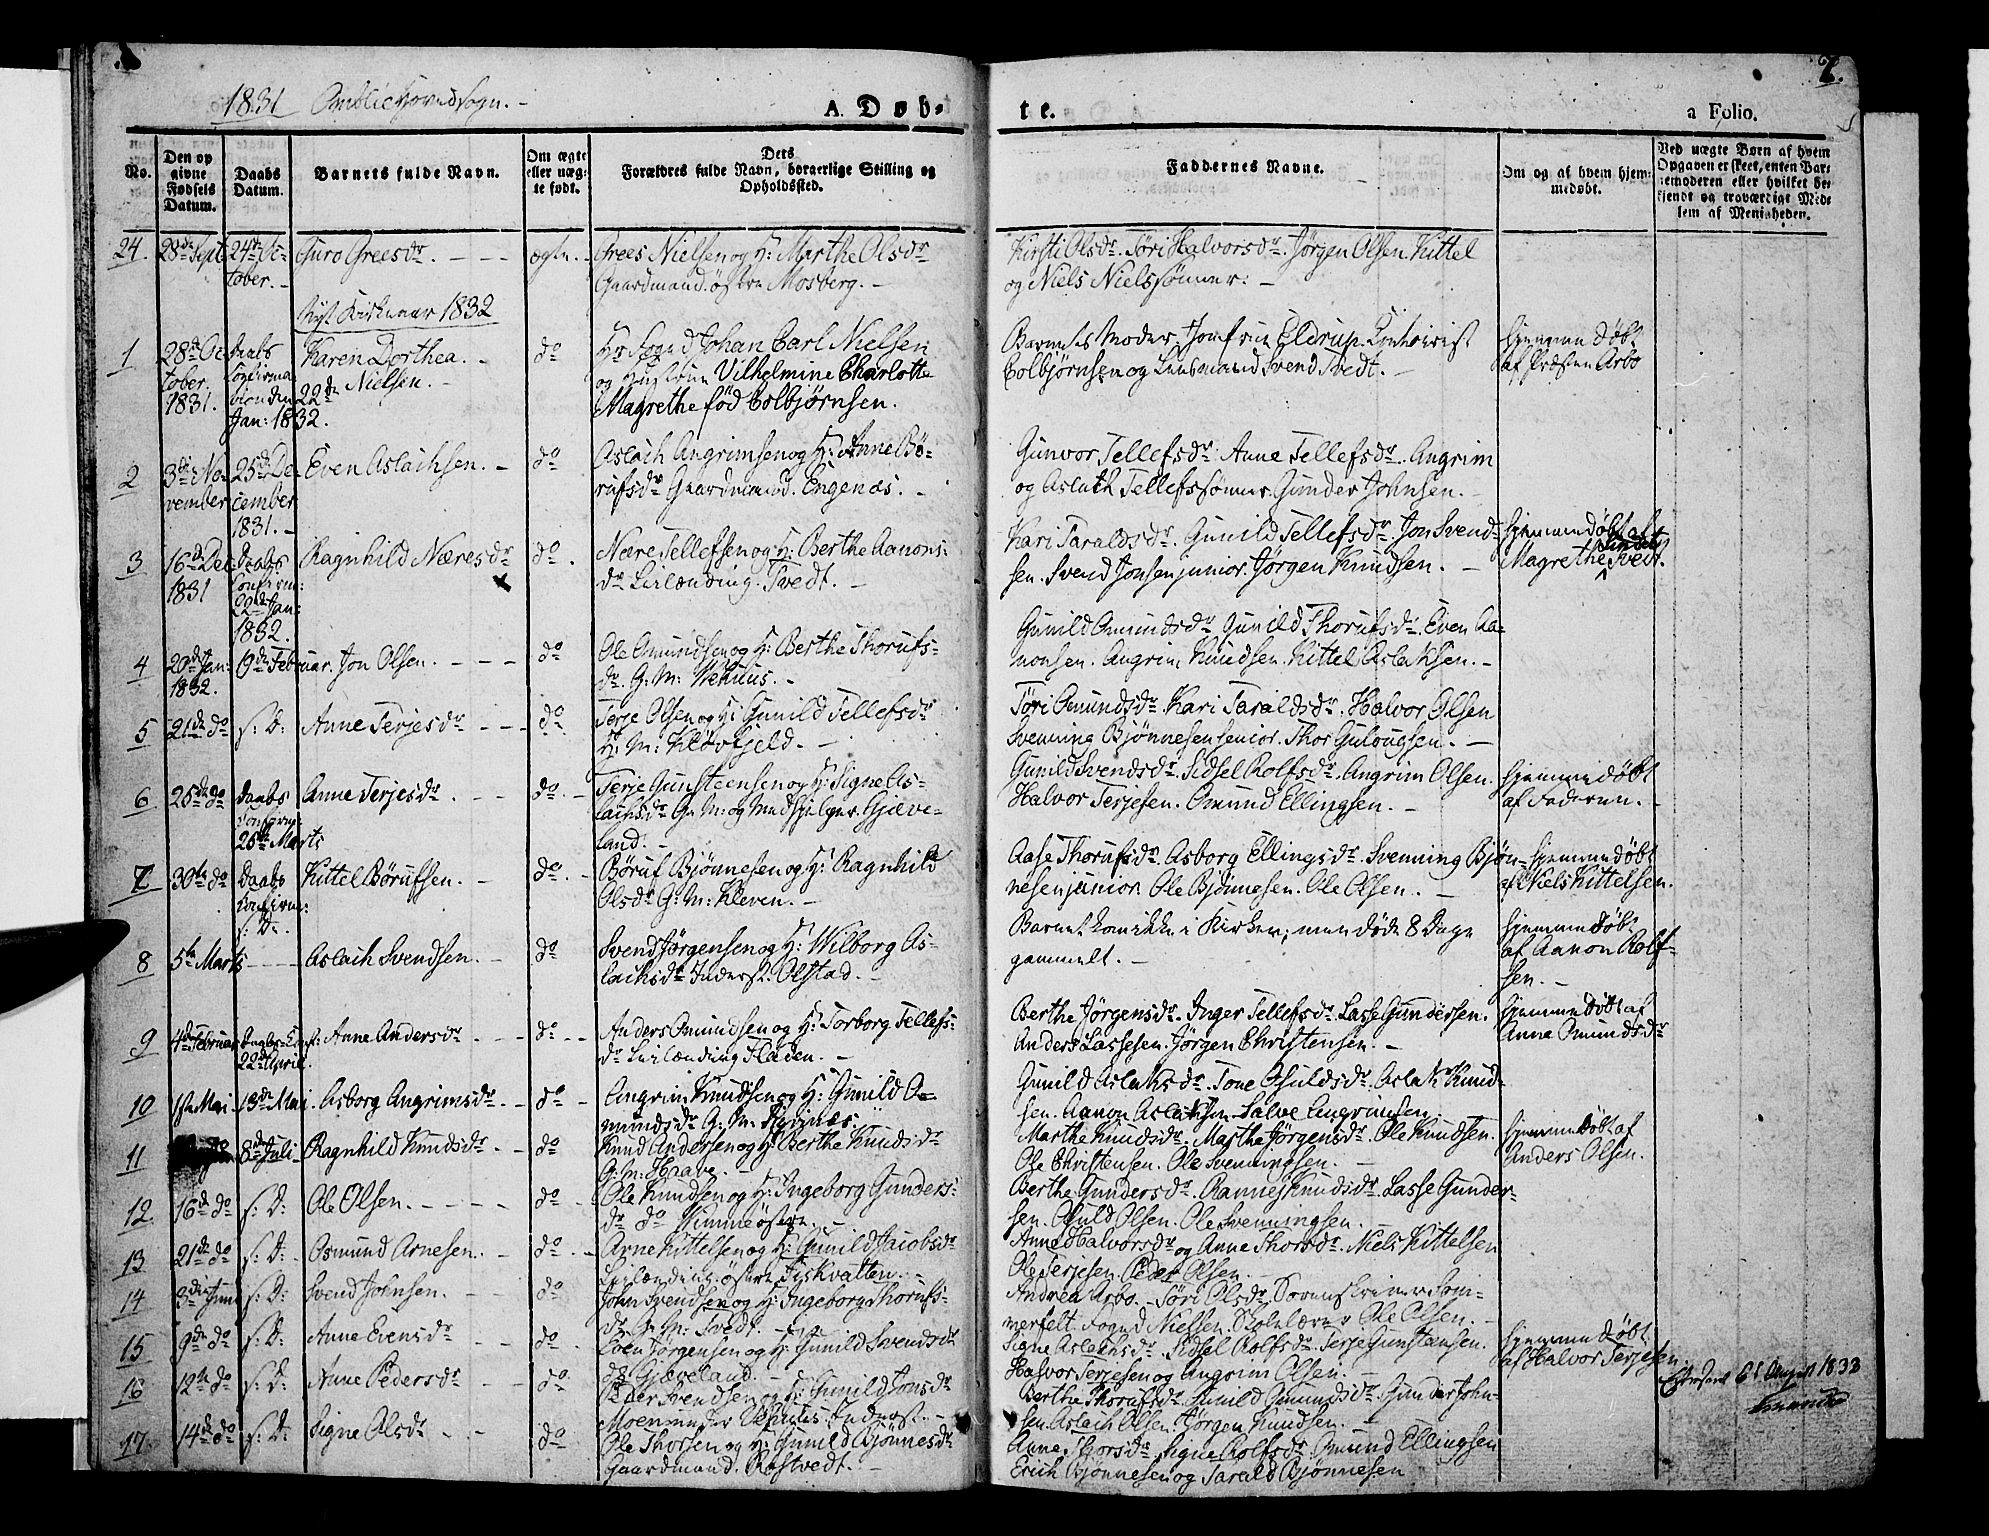 1831 Omblie Hovedsogn. -
A. Døb-
te.
a Folio.
7.
No.
Den op
givne
Fødsels
Datum.
Daabs
Datum.
Barnets fulde Navn.
Om ægte
eller uæg-
te født.
Dets
Forældres fulde Navn, borgerlige Stilling og
Opholdssted.
Faddernes Navne.
Om og af hvem hjem-
medøbt.
Ved uægte Børn af hvem
Opgaven er skeet, enten Bar-
nemoderen eller hvilket be-
kjendt og troværdigt Med-
lem af Menigheden.
24. 28de Sept 24de Oc- Guro Greesdr. - - - ægte. - Grees Nielsen og H: Marthe Olsdr
tober. - Gaardmand. østre Mosberg. -
Kirsti Olsdr. Tøri Halvorsdr. Jørgen Olsen. Kittel
og Niels Nielssønner. -
Nyt Kirkeaar 1832
1 28de Oc- Daabs Karen Dorthea. - do Hr Foged Johan Carl Nielsen
tober. Confirma- Nielsen. - og Hustrue Vilhelmine Charlotte
1831. tion den 22de Magrethe fød Colbjørnsen.
Jan: 1832.
Barnets Moder. Jomfrue Eldrup. Contorist
Colbjørnsen og Lensmand Svend Tvedt. -
hjemmedøbt
af Præsten Arbo
2 3die No- 25de De- Even Aslachsen. - do Aslach Angrimsen og H: Anne Bø-
vember cember rufsdr Gaardmand. Engenæs. -
1831. -
Gunvor Tellefsdr. Anne Tellefsdr. Angrim
og Aslach Tellefssønner. Gunder Johnsen. -
3 16de Dec: Daabs Ragnhild Næresdr do. Nære Tellefsen og H: Berthe Aanons-
1831 Confirm: dr Leilænding. Tvedt. -
22de Jan:
1832.
Kari Taraldsdr. Gunild Tellefsdr. Jon Svend-
sen. Svend Jonsen junior. Jørgen Knudsen. -
hjemmedøbt af
Magrethe Tvedt.
4 20de Jan: 19de Februar. Jon Olsen. - - - do Ole Omundsen og H: Berthe Thorufs-
1832. dr. G: M: Wehuus. -
Gunild Omundsdr. Gunild Thorufsdr. Even Aa-
nonsen. Angrim Knudsen. Kittel Aslaksen. -
5 21de do s: D: Anne Terjesdr - - - do Terje Olsen og H: Gunild Tellefsdr
G: M: Kløvfjeld. -
Tøri Omundsdr. Kari Taraldsdr. Halvor Olsen
Svenning Bjønnesen senior. Thor Gulougsen. -
6 25de do Daabs Anne Terjesdr. - - do. - Terje Gunsteensen og H: Signe As-
Confirm: lachsdr G: M: og Medhjelper. Gjæve-
25de Marts land. -
Gunild Svendsdr. Sidsel Rolfsdr. Angrim Olsen.
Halvor Terjesen. Omund Ellingsen. -
hjemmedøbt
af Faderen. -
7 30te do Daabs Kittel Børufsen. - do. - Børuf Bjønnesen og H: Ragnhild
Confirm: Olsdr G: M: Kleven. -
s: D:
Aase Thorufsdr. Asborg Ellingsdr. Svenning Bjøn-
nesen junior. Ole Bjønnesen. Ole Olsen. -
hjemmedøbt
af Niels Kittelsen.
8 5te Marts - - Aslach Svendsen. - do Svend Jørgensen og H: Wilborg As-
lachsdr Inderst. Olstad. -
Barnet kom ikke i Kirken, men døde 8 Dage
gammelt. -
hjemmedøbt
af Aanon Rolf-
sen. -
9 4de Februar Daabs-Conf: Anne Andersdr - - do - - Anders Omundsen og H: Torborg Tellefs-
22de April. dr Leilænding Fladen. -
Berthe Jørgensdr. Inger Tellefsdr. Lasse Gundersen.
Anders Lassesen. Jørgen Christensen. -
hjemmedøbt af
Anne Omundsdr
10 1ste Mai 13de Mai. Asborg Angrimsdr. - - do - Angrim Knudsen og H: Gunild O-
mundsdr G: M:
Gunild Aslaksdr. Tone Osuldsdr. Aslak Knud-
sen. Aanon Aslaksen. Salve Angrimsen.
11 do 8de Juli - Ragnhild Knudsdr. - - do Knud Andersen og H: Berthe Knudsdr
G: M: Hauve. -
Marthe Knudsdr. Marthe Jørgensdr. Ole Knudsen.
Ole Christensen. Ole Svenningsen. -
hjemmedøbt af
Anders Olsen.
12. 16de do s: D: Ole Olsen. - - - - do - Ole Knudsen og H: Ingeborg Gunders-
dr do Himme østre. -
Berthe Gundersdr. Rannei Knudsdr. Lasse Gunder-
sen. Osuld Olsen. Ole Svenningsen.
13 21de do s: D: - Osmund Arnesen. - do. - Arne Kittelsen og H: Gunild Jacobsdr
Leilænding. østre Fiskvatten. -
Anne Halvorsdr og Anne Thorsdr. Niels Kittelsen
Ole Terjesen. Peder Olsen. -
14 3die Juni s: D: Svend Johnsen. - - do John Svendsen og H: Ingeborg Thorufs-
dr. G: M: Tvedt. -
Andrea Arbo. - Tøri Olsdr. Sorenskriver Som-
merfelt. Foged Nielsen. Skolelærer Ole Olsen. -
15 9de do s: D: Anne Evensdr - - do. Even Jørgensen og H: Gunild Svendsdr
do Gjæveland. -
Signe Aslachsdr. Sidsel Rolfsdr. Terje Gunstensen.
Halvor Terjesen og Angrim Olsen. -
hjemmedøbt
af Halvor Terjesen
16 12te do s: D: Anne Pedersdr - - do. Peder Svendsen og H: Gunild Jonsdr
Moen under Vehuus. Inderst. -
Berthe Thorufsdr. Gunild Omundsdr. Gunder John-
sen. Aslach Olsen. Jørgen Knudsen. -
17. 14de do s: D: Signe Olsdr - - do Ole Thorsen og H: Gunild Bjønnesdr
Gaardmand. Røstvedt. -
Anne Thorsdr. Signe Rolfsdr. Omund Ellingsen
Erich Bjønnesen og Tarald Bjønnesen
August 1833